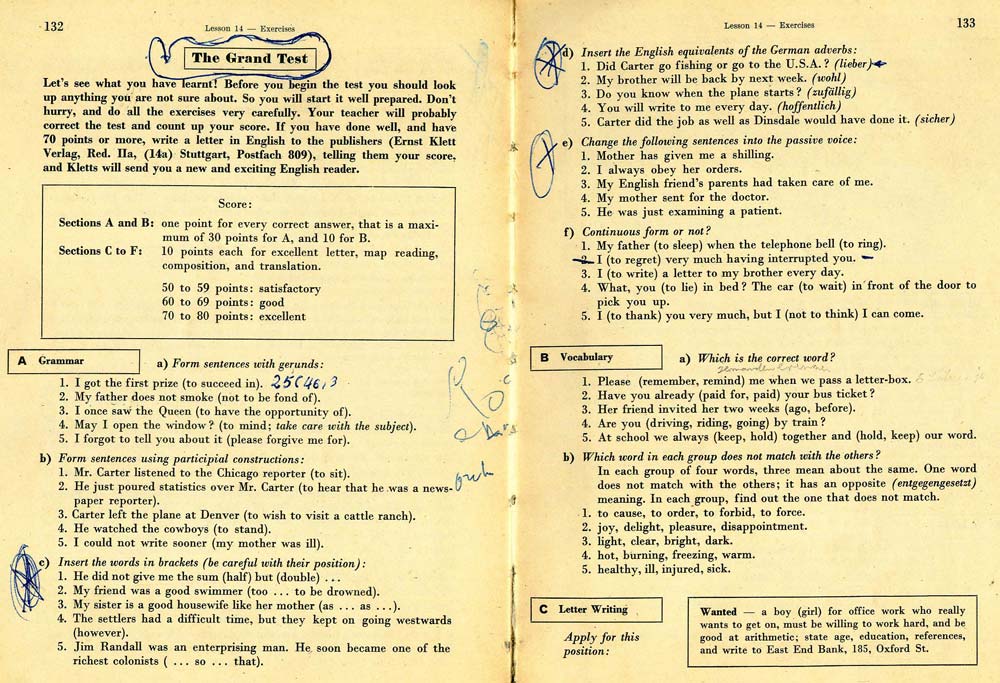 132
Lesson 14 — Exercises
The Grand Test
Let's see what you have learnt! Before you begin the test you should look
up anything you are not sure about. So you will start it well prepared. Don't
hurry, and do all the exercises very carefully. Your teacher will probably
correct the test and count up your score. If you have done well, and have
70 points or more, write a letter in English to the publishers (Ernst Klett
Verlag, Red. IIa, (14a) Stuttgart, Postfach 809), telling them your score,
and Kletts will send you a new and exciting English reader.
Score:
Sections A and B: one point for every correct answer, that is a maxi-
mum of 30 points for A, and 10 for B.
Sections C to F: 10 points each for excellent letter, map reading,
composition, and translation.
50 to 59 points: satisfactory
60 to 69 points: good
70 to 80 points: excellent
A Grammar
a) Form sentences with gerunds:
1. I got the first prize (to succeed in).
2. My father does not smoke (not to be fond of).
3. I once saw the Queen (to have the opportunity of).
4. May I open the window? (to mind; take care with the subject).
5. I forgot to tell you about it (please forgive me for).
b) Form sentences using participial constructions:
1. Mr. Carter listened to the Chicago reporter (to sit).
2. He just poured statistics over Mr. Carter (to hear that he was a news-
paper reporter).
3. Carter left the plane at Denver (to wish to visit a cattle ranch).
4. He watched the cowboys (to stand).
5. I could not write sooner (my mother was ill).
c) Insert the words in brackets (be careful with their position):
1. He did not give me the sum (half) but (double) ...
2. My friend was a good swimmer (too ... to be drowned).
3. My sister is a good housewife like her mother (as ... as ...).
4. The settlers had a difficult time, but they kept on going westwards
(however).
5. Jim Randall was an enterprising man. He soon became one of the
richest colonists ( ... so ... that).
Lesson 14 — Exercises
133
d) Insert the English equivalents of the German adverbs:
1. Did Carter go fishing or go to the U.S.A.? (lieber)
2. My brother will be back by next week. (wohl)
3. Do you know when the plane starts? (zufällig)
4. You will write to me every day. (hoffentlich)
5. Carter did the job as well as Dinsdale would have done it. (sicher)
e) Change the following sentences into the passive voice:
1. Mother has given me a shilling.
2. I always obey her orders.
3. My English friend's parents had taken care of me.
4. My mother sent for the doctor.
5. He was just examining a patient.
f) Continuous form or not?
1. My father (to sleep) when the telephone bell (to ring).
2. I (to regret) very much having interrupted you.
3. I (to write) a letter to my brother every day.
4. What, you (to lie) in bed? The car (to wait) in front of the door to
pick you up.
5. I (to thank) you very much, but I (not to think) I can come.
B Vocabulary
a) Which is the correct word?
1. Please (remember, remind) me when we pass a letter-box.
2. Have you already (paid for, paid) your bus ticket?
3. Her friend invited her two weeks (ago, before).
4. Are you (driving, riding, going) by train?
5. At school we always (keep, hold) together and (hold, keep) our word.
b) Which word in each group does not match with the others?
In each group of four words, three mean about the same. One word
does not match with the others; it has an opposite (entgegengesetzt)
meaning. In each group, find out the one that does not match.
1. to cause, to order, to forbid, to force.
2. joy, delight, pleasure, disappointment.
3. light, clear, bright, dark.
4. hot, burning, freezing, warm.
5. healthy, ill, injured, sick.
C Letter Writing
Apply for this
position:
Wanted — a boy (girl) for office work who really
wants to get on, must be willing to work hard, and be
good at arithmetic; state age, education, references,
and write to East End Bank, 185, Oxford St.